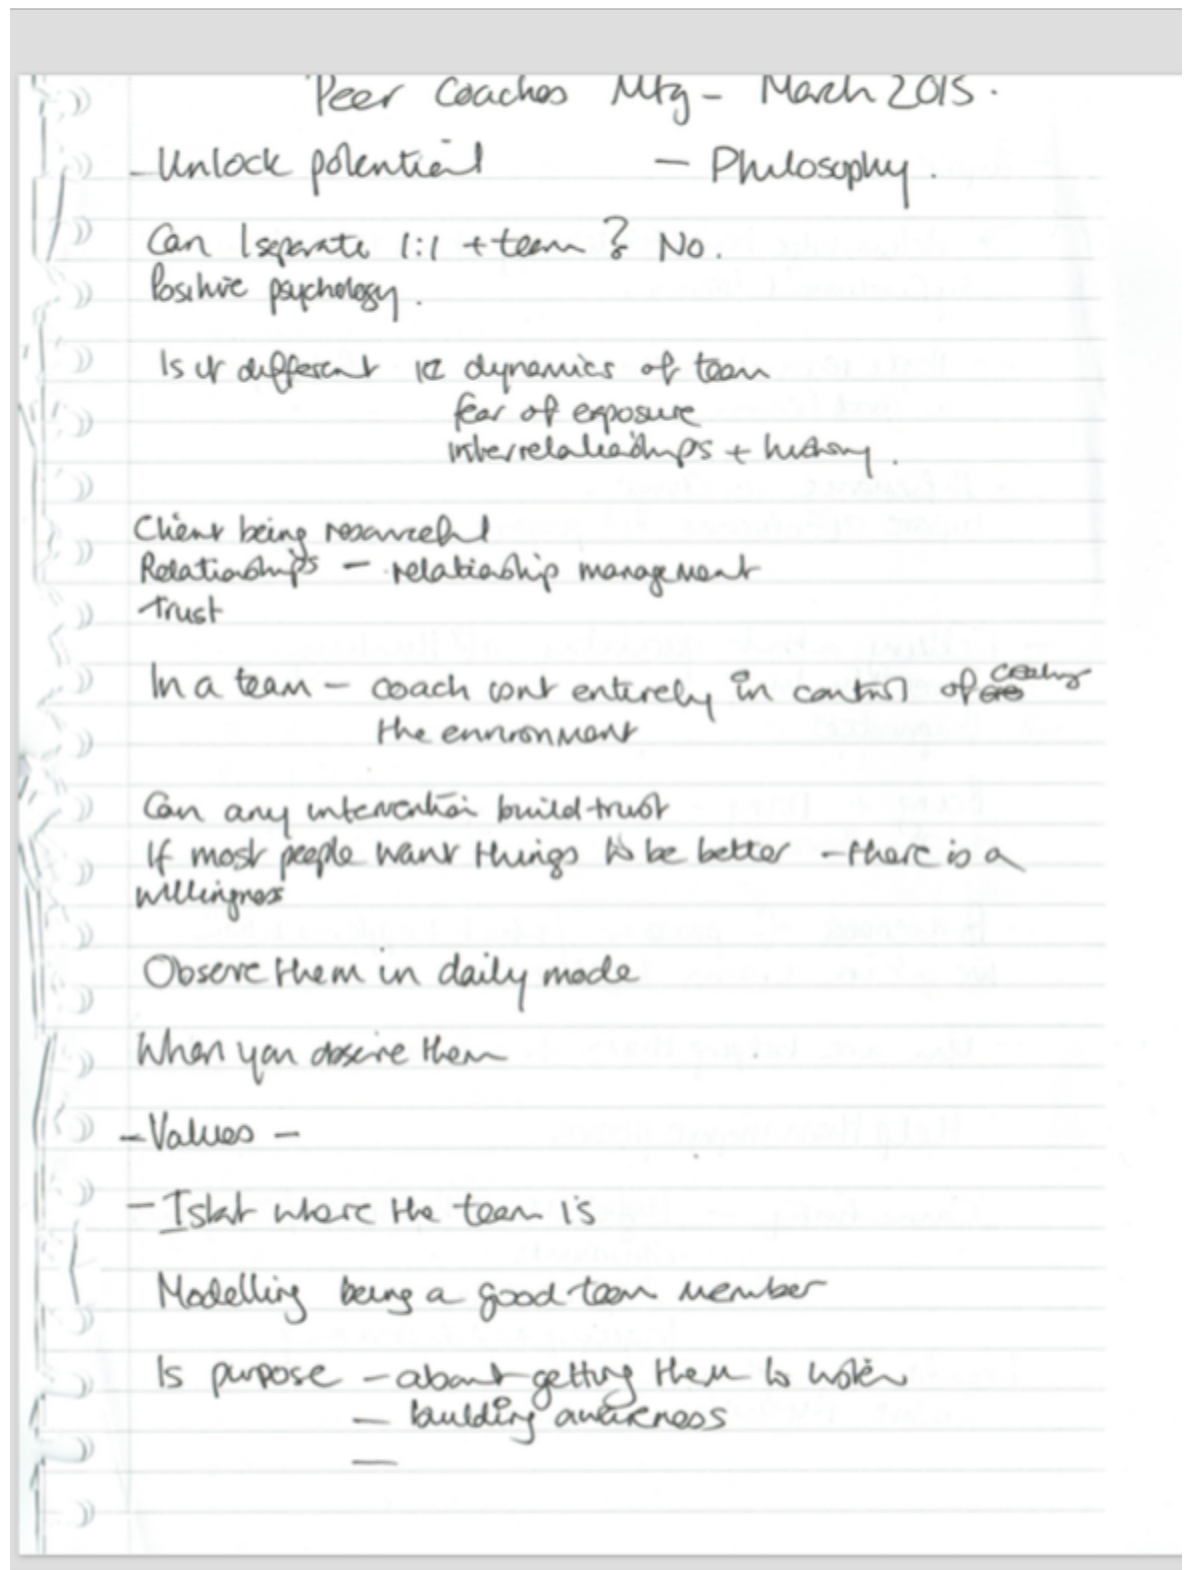 Peer Coaches Mtg - March 2015.
- Unlock potential - Philosophy.
Can I separate 1:1 + team? No.
Positive psychology.
Is it different ie dynamics of team
fear of exposure
interrelationships + history.
Client being resourceful
Relationships - relationship management
Trust
In a team - coach cont entirely in control of
the environment
Can any intervention build trust
If most people want things to be better - there is a
willingness
Observe them in daily mode
When you observe them
- Values -
- Is that where the team is
Modelling being a good team member
Is purpose - about getting them to listen
- building awareness
-